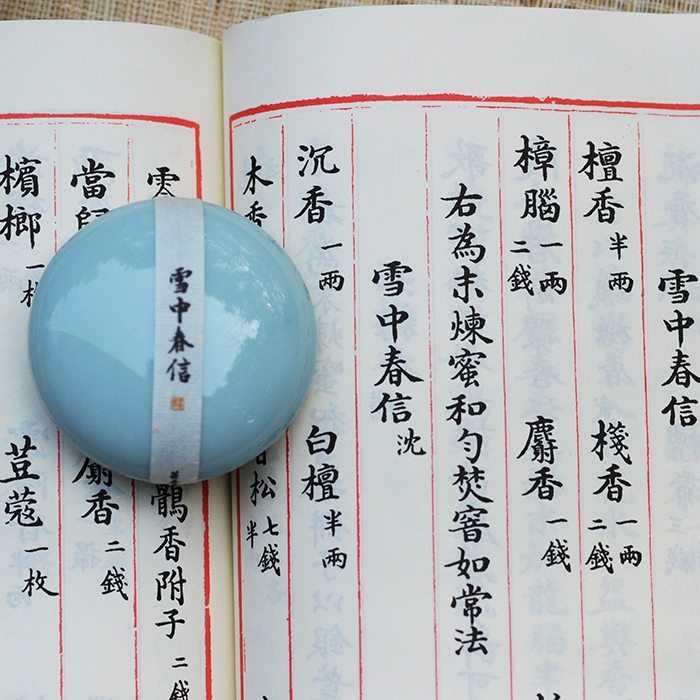 雪中春信
檀香半兩 棧香一兩二錢
樟腦一兩二錢 麝香一錢
右為末煉蜜和勻焚窨如常法
雪中春信沈
沉香一兩 白檀半兩
木香 松七錢半
零 鶻香附子二錢
當 麝香二錢
檳榔一 荳蔻一枚
雪中春信